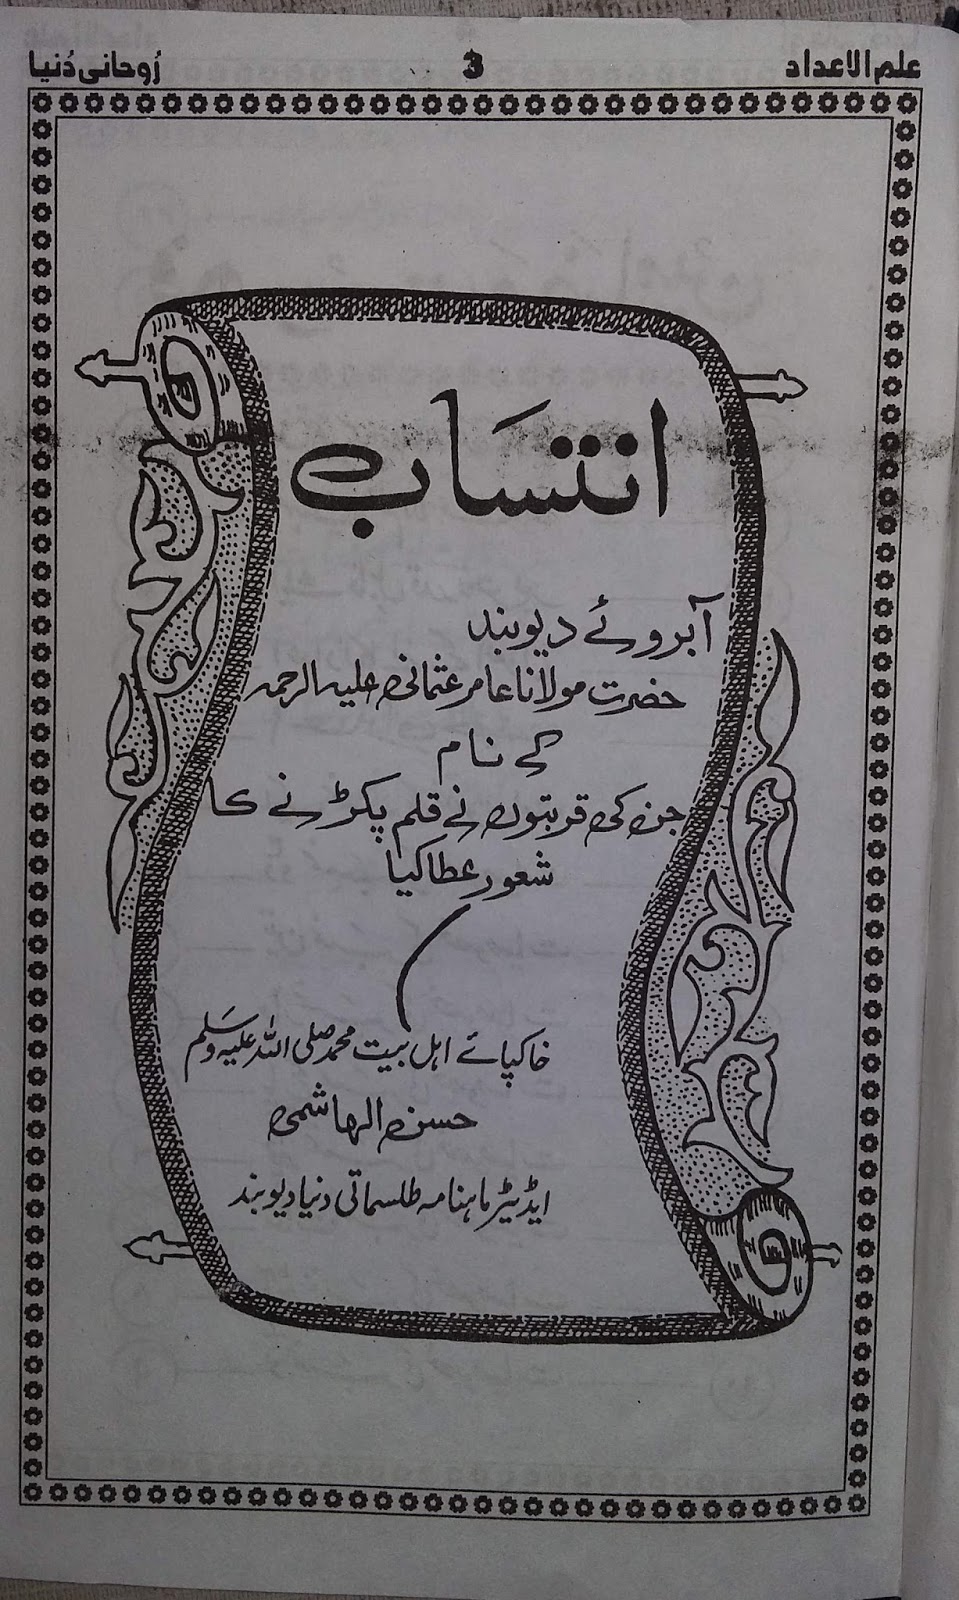 علم الاعداد 3 رُوحانی دُنیا
انتسَاب
آبروئے دیوبند
حضرت مولانا عامر عثمانی علیہ الرحمہ
کے نام
جن کی قربتوں نے قلم پکڑنے کا
شعور عطا کیا
خاکپائے اہل بیت محمد صلی اللہ علیہ وسلم
حسن الہاشمی
ایڈیٹر ماہنامہ طلسماتی دنیا دیوبند